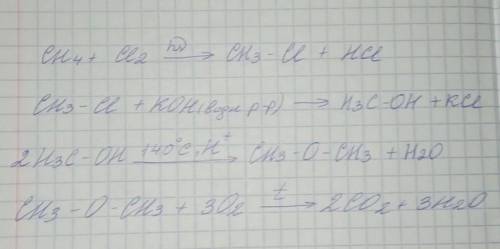 CH4 + Cl2 hν → CH3-Cl + HCl
CH3-Cl + KOH(водн р-р) → H3C-OH + KCl
2H3C-OH 140°C, H+ → CH3-O-CH3 + H2O
CH3-O-CH3 + 3O2 t → 2CO2 + 3H2O